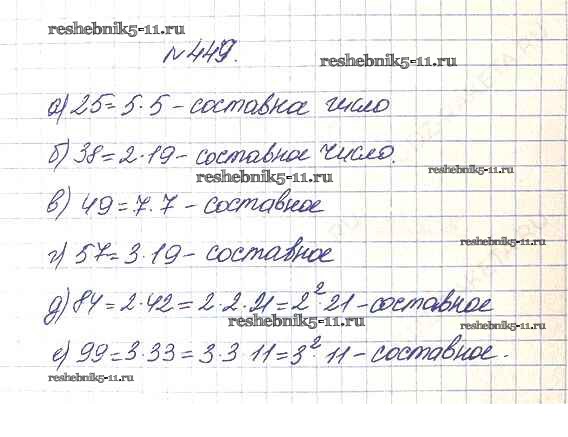 reshebnik5-11.ru
№449.
reshebnik5-11.ru
а) 25=5·5 – составное число
б) 38=2·19 – составное число.
reshebnik5-11.ru
reshebnik5-11.ru
в) 49=7·7 – составное
г) 57=3·19 – составное
reshebnik5-11.ru
д) 84=2·42=2·2·21=2²·21 – составное
reshebnik5-11.ru
reshebnik5-11.ru
е) 99=3·33=3·3 11=3²·11 – составное.
reshebnik5-11.ru